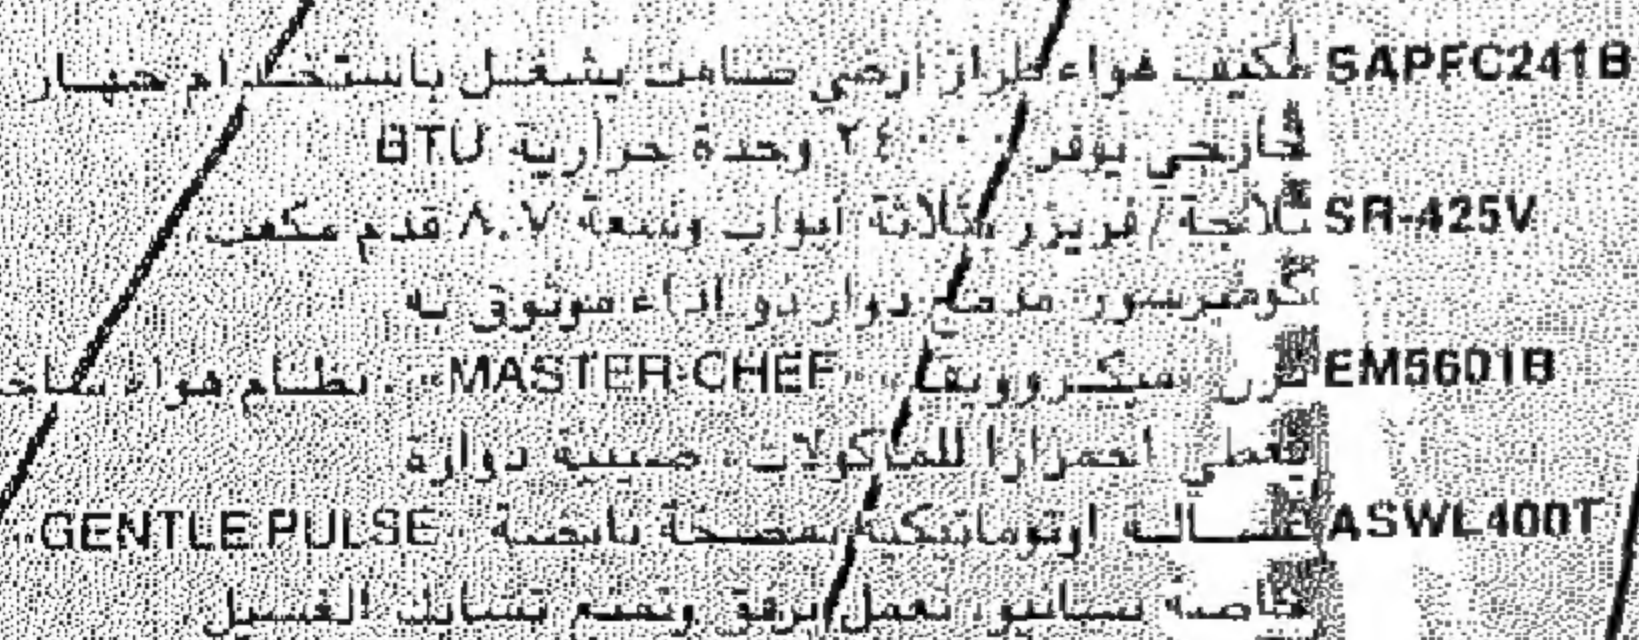 SAPFC241B مكيف هواء طراز ارضي صامت يشغل باستخدام جهاز
خارجي يوفر ٢٤٠٠٠ وحدة حرارية BTU
SR-425V ثلاجة/فريزر بثلاثة ابواب وسعة ٨،٧ قدم مكعب،
كومبرسور مدمج دوار ذو اداء موثوق به
EM5601B فرن ميكروويف «MASTER-CHEF» بنظام هواء ساخن
يعطي احمرارا للماكولات، صينية دوارة
ASWL400T غسالة اوتوماتيكية بمضخة نابضة «GENTLE PULSE»
خاصة بسانيو، تعمل برفق وتمنع تشابك الغسيل